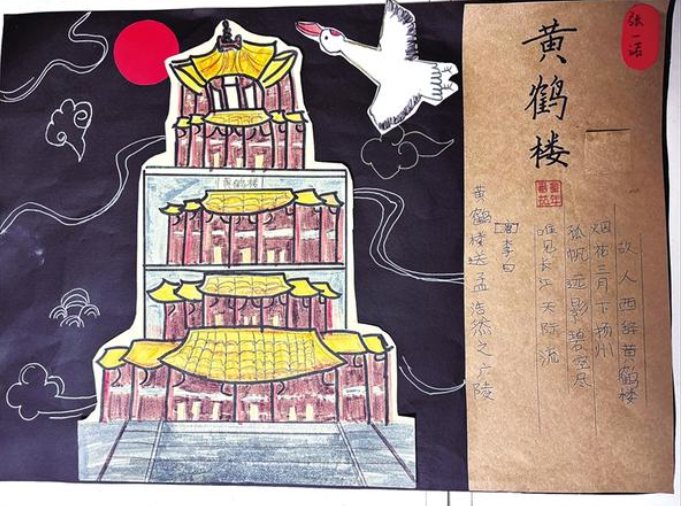 黄鹤楼
故人西辞黄鹤楼
烟花三月下扬州
孤帆远影碧空尽
唯见长江天际流
[唐]李白
黄鹤楼送孟浩然之广陵
黄鹤楼
张一